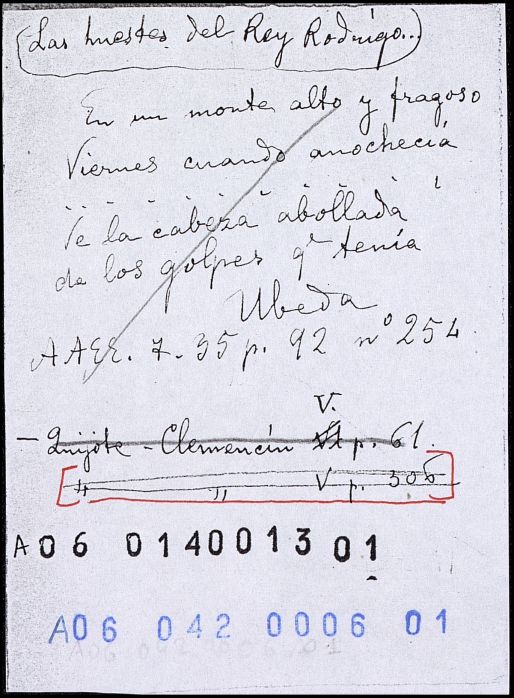 (Las huestes del Rey Rodrigo...)
En un monte alto y fragoso
Viernes cuando anochecía
Ve la cabeza abollada
de los golpes qe tenía
Ubeda
AAEE. 7-35 p. 92 nº 254
- Quijote - Clemencín V. p. 61.
" " V p. 306
A06 0140013 01
A06 042 0006 01